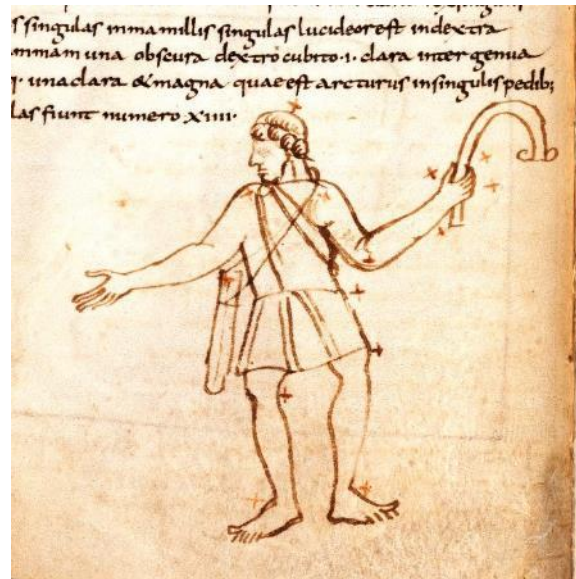 s singulas inmamillis singulas lucidior est indextra
mmam una obscura dextro cubito ·i· clara inter genua
·i· una clara & magna quae est arcturus insingulis pedib;
las fiunt numero xiiii·